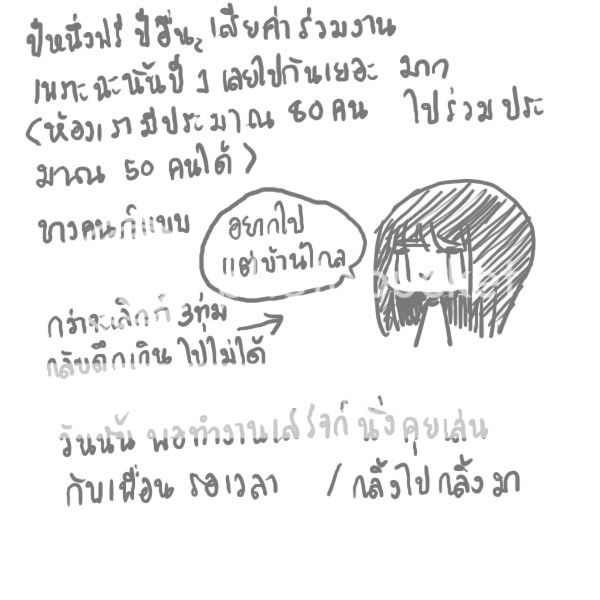 ปีหนึ่งฟรี ปีอื่นๆ เสียค่าร่วมงาน
เพราะฉะนั้นปี 1 เลยไปกันเยอะ มาก
(ห้องเรามีประมาณ 80 คน ไปร่วม ประ
มาณ 50 คนได้)
บางคนก็แบบ
อยากไป
แต่บ้านไกล
กว่าจะเลิกก็ 3ทุ่ม
กลับดึกเกิน ไปไม่ได้
วันนั้น พอทำงานเสร็จก็ นั่งคุยเล่น
กับเพื่อน รอเวลา / กลิ้งไป กลิ้งมา